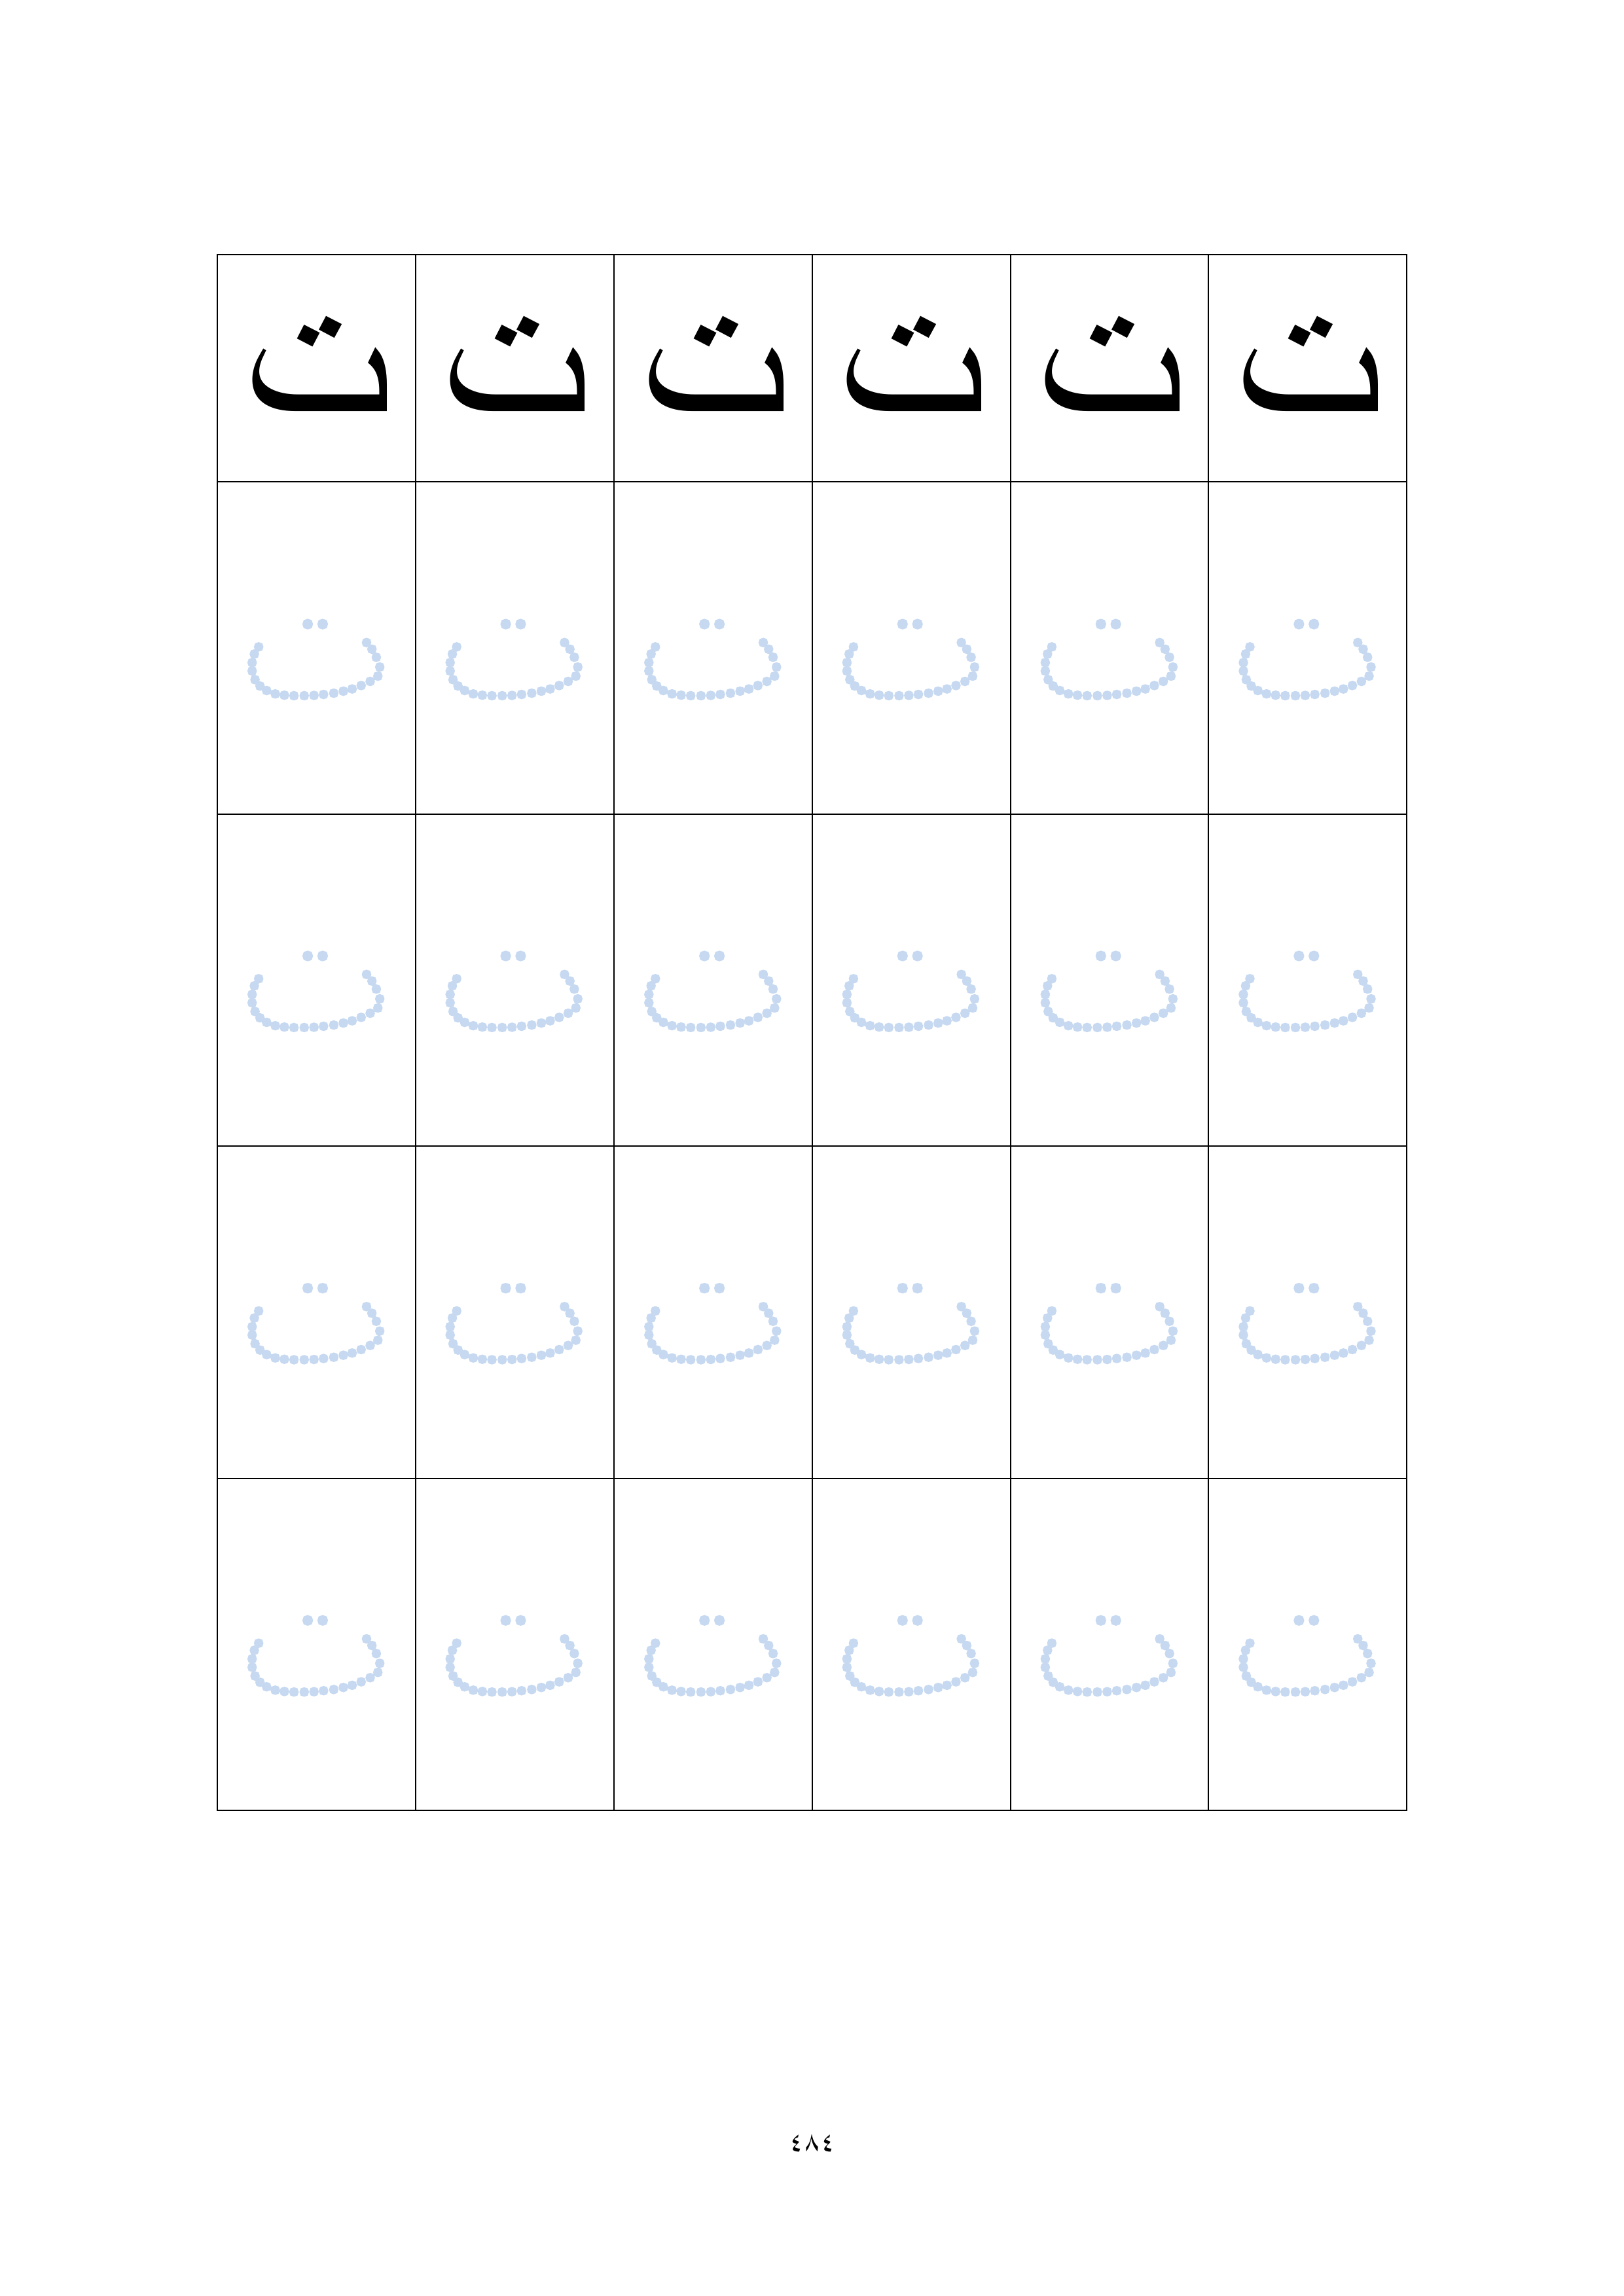 ت ت ت ت ت ت
ت ت ت ت ت ت
ت ت ت ت ت ت
ت ت ت ت ت ت
ت ت ت ت ت ت
٤٨٤